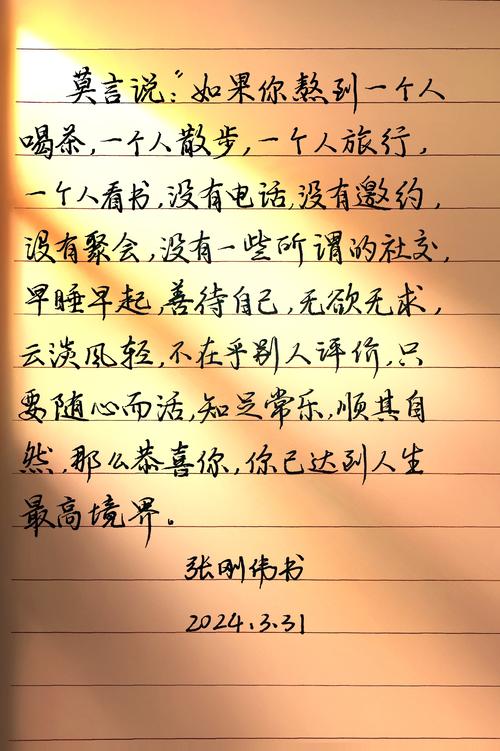 莫言说:“如果你熬到一个人
喝茶,一个人散步,一个人旅行,
一个人看书,没有电话,没有邀约,
没有聚会,没有一些所谓的社交,
早睡早起,善待自己,无欲无求,
云淡风轻,不在乎别人评价,只
要随心而活,知足常乐,顺其自
然,那么恭喜你,你已达到人生
最高境界。
张刚伟书
2024.3.31